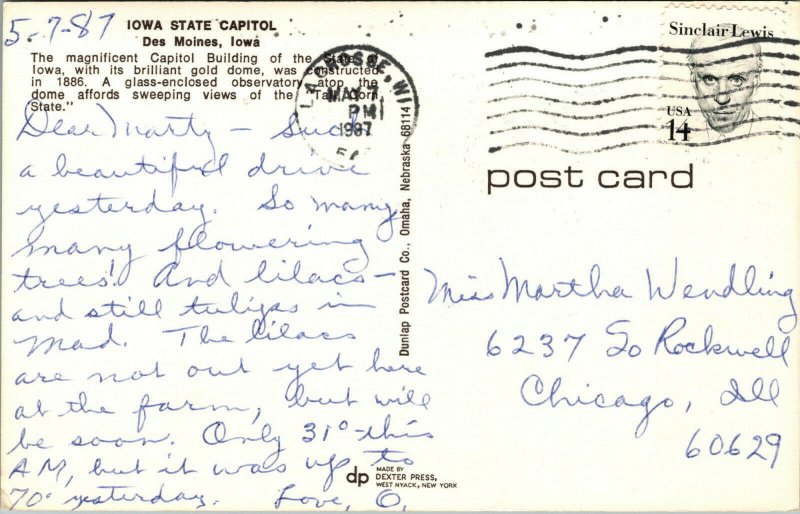 5-7-87
IOWA STATE CAPITOL
Des Moines, Iowa
The magnificent Capitol Building of the State of
Iowa, with its brilliant gold dome, was constructed
in 1886. A glass-enclosed observatory atop the
dome affords sweeping views of the "Tall Corn
State."
Dear Marty - Such
a beautiful drive
yesterday. So many
many flowering
trees! And lilacs -
and still tulips in
Mad. The lilacs
are not out yet here
at the farm, but will
be soon. Only 31° this
AM, but it was up to
70° yesterday. Love, O.
LA CROSSE, WI
MAY 7
PM
1987
Dunlap Postcard Co., Omaha, Nebraska 68114
dp MADE BY
DEXTER PRESS,
WEST NYACK, NEW YORK
Sinclair Lewis
USA
14
post card
Miss Martha Wendling
6237 So Rockwell
Chicago, Ill
60629